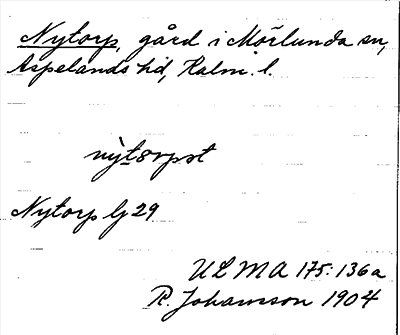 Nytorp, gård i Mörlunda sn,
Aspelands hd, Kalm. l.
Nytorp Gj 29
ULMA 175:136a
R. Johansson 1904